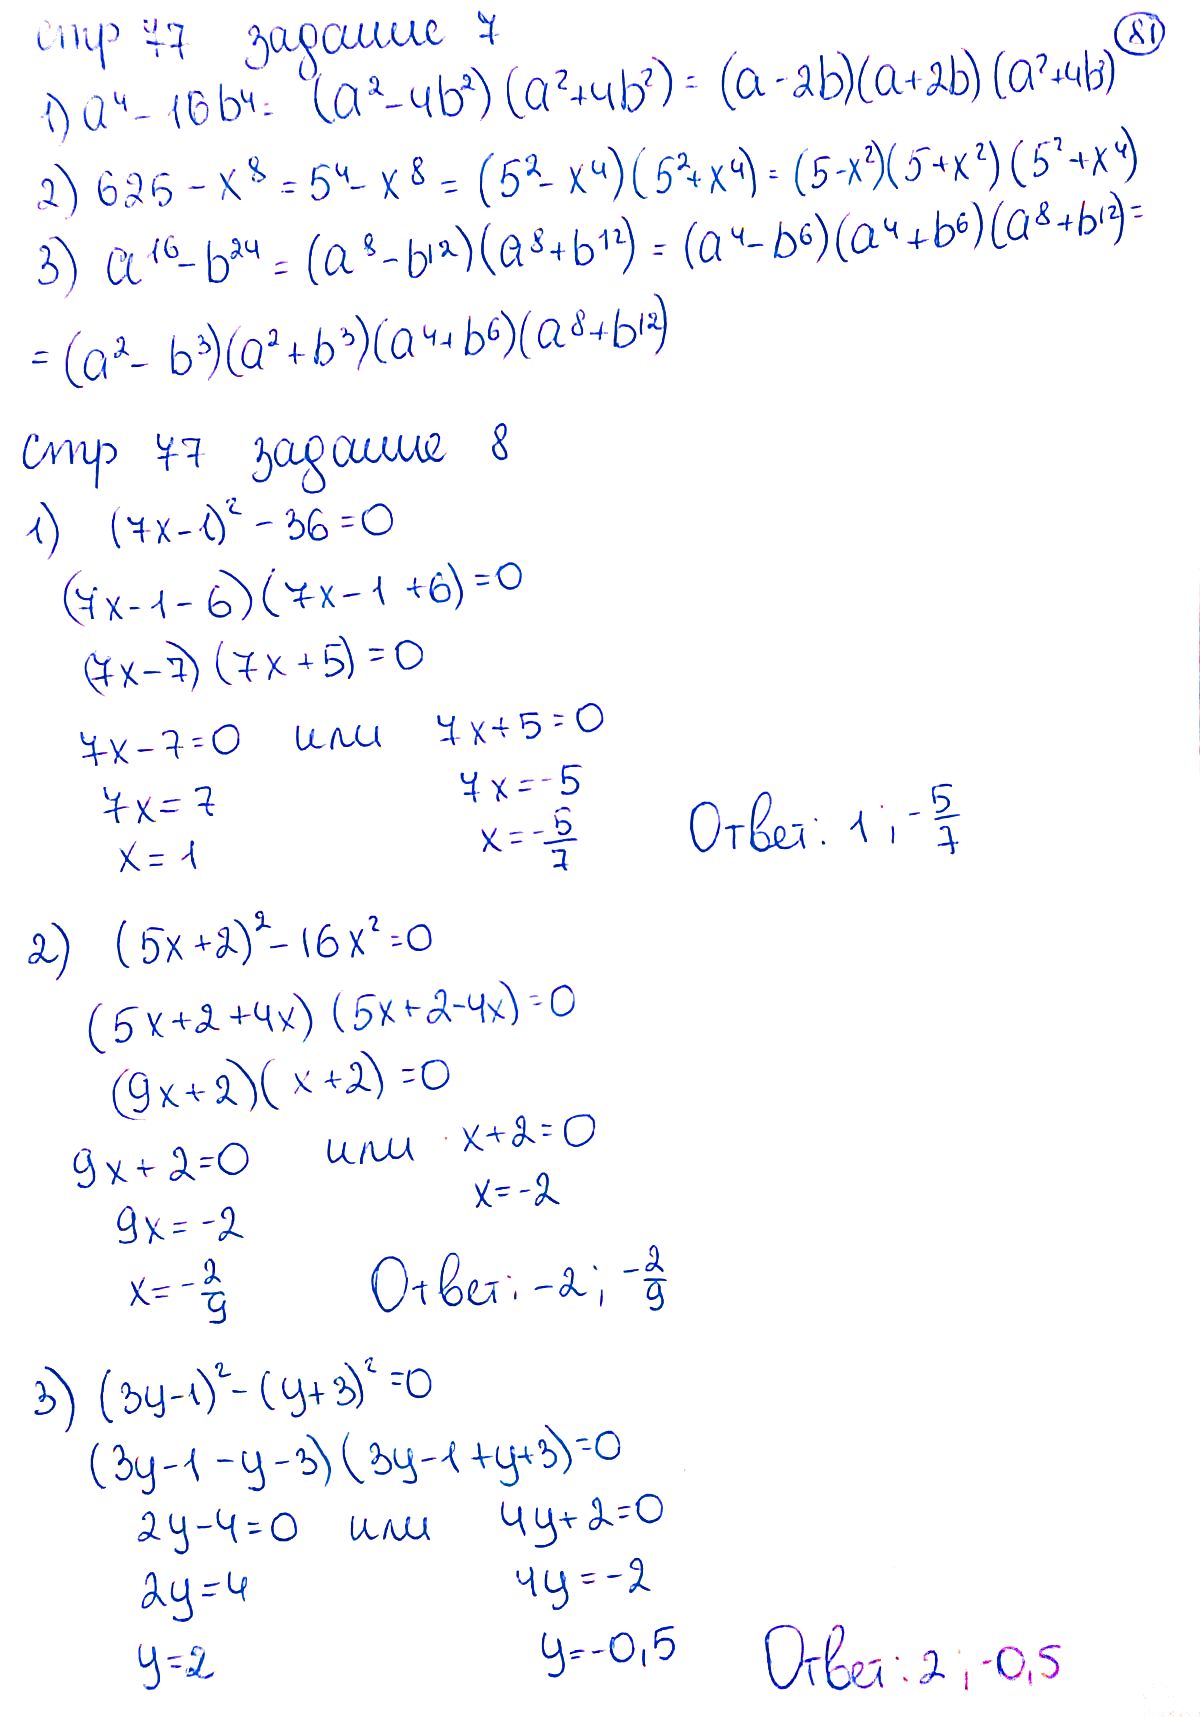 81
стр 77 задание 7
1) a⁴ - 16b⁴ = (a² - 4b²)(a² + 4b²) = (a - 2b)(a + 2b)(a² + 4b²)
2) 625 - x⁸ = 5⁴ - x⁸ = (5² - x⁴)(5² + x⁴) = (5 - x²)(5 + x²)(5² + x⁴)
3) a¹⁶ - b²⁴ = (a⁸ - b¹²)(a⁸ + b¹²) = (a⁴ - b⁶)(a⁴ + b⁶)(a⁸ + b¹²) =
= (a² - b³)(a² + b³)(a⁴ + b⁶)(a⁸ + b¹²)
стр 77 задание 8
1) (7x - 1)² - 36 = 0
(7x - 1 - 6)(7x - 1 + 6) = 0
(7x - 7)(7x + 5) = 0
7x - 7 = 0 или 7x + 5 = 0
7x = 7 7x = -5
x = 1 x = -5/7 Ответ: 1; -5/7
2) (5x + 2)² - 16x² = 0
(5x + 2 + 4x)(5x + 2 - 4x) = 0
(9x + 2)(x + 2) = 0
9x + 2 = 0 или x + 2 = 0
9x = -2 x = -2
x = -2/9 Ответ: -2; -2/9
3) (3y - 1)² - (y + 3)² = 0
(3y - 1 - y - 3)(3y - 1 + y + 3) = 0
2y - 4 = 0 или 4y + 2 = 0
2y = 4 4y = -2
y = 2 y = -0,5 Ответ: 2; -0,5